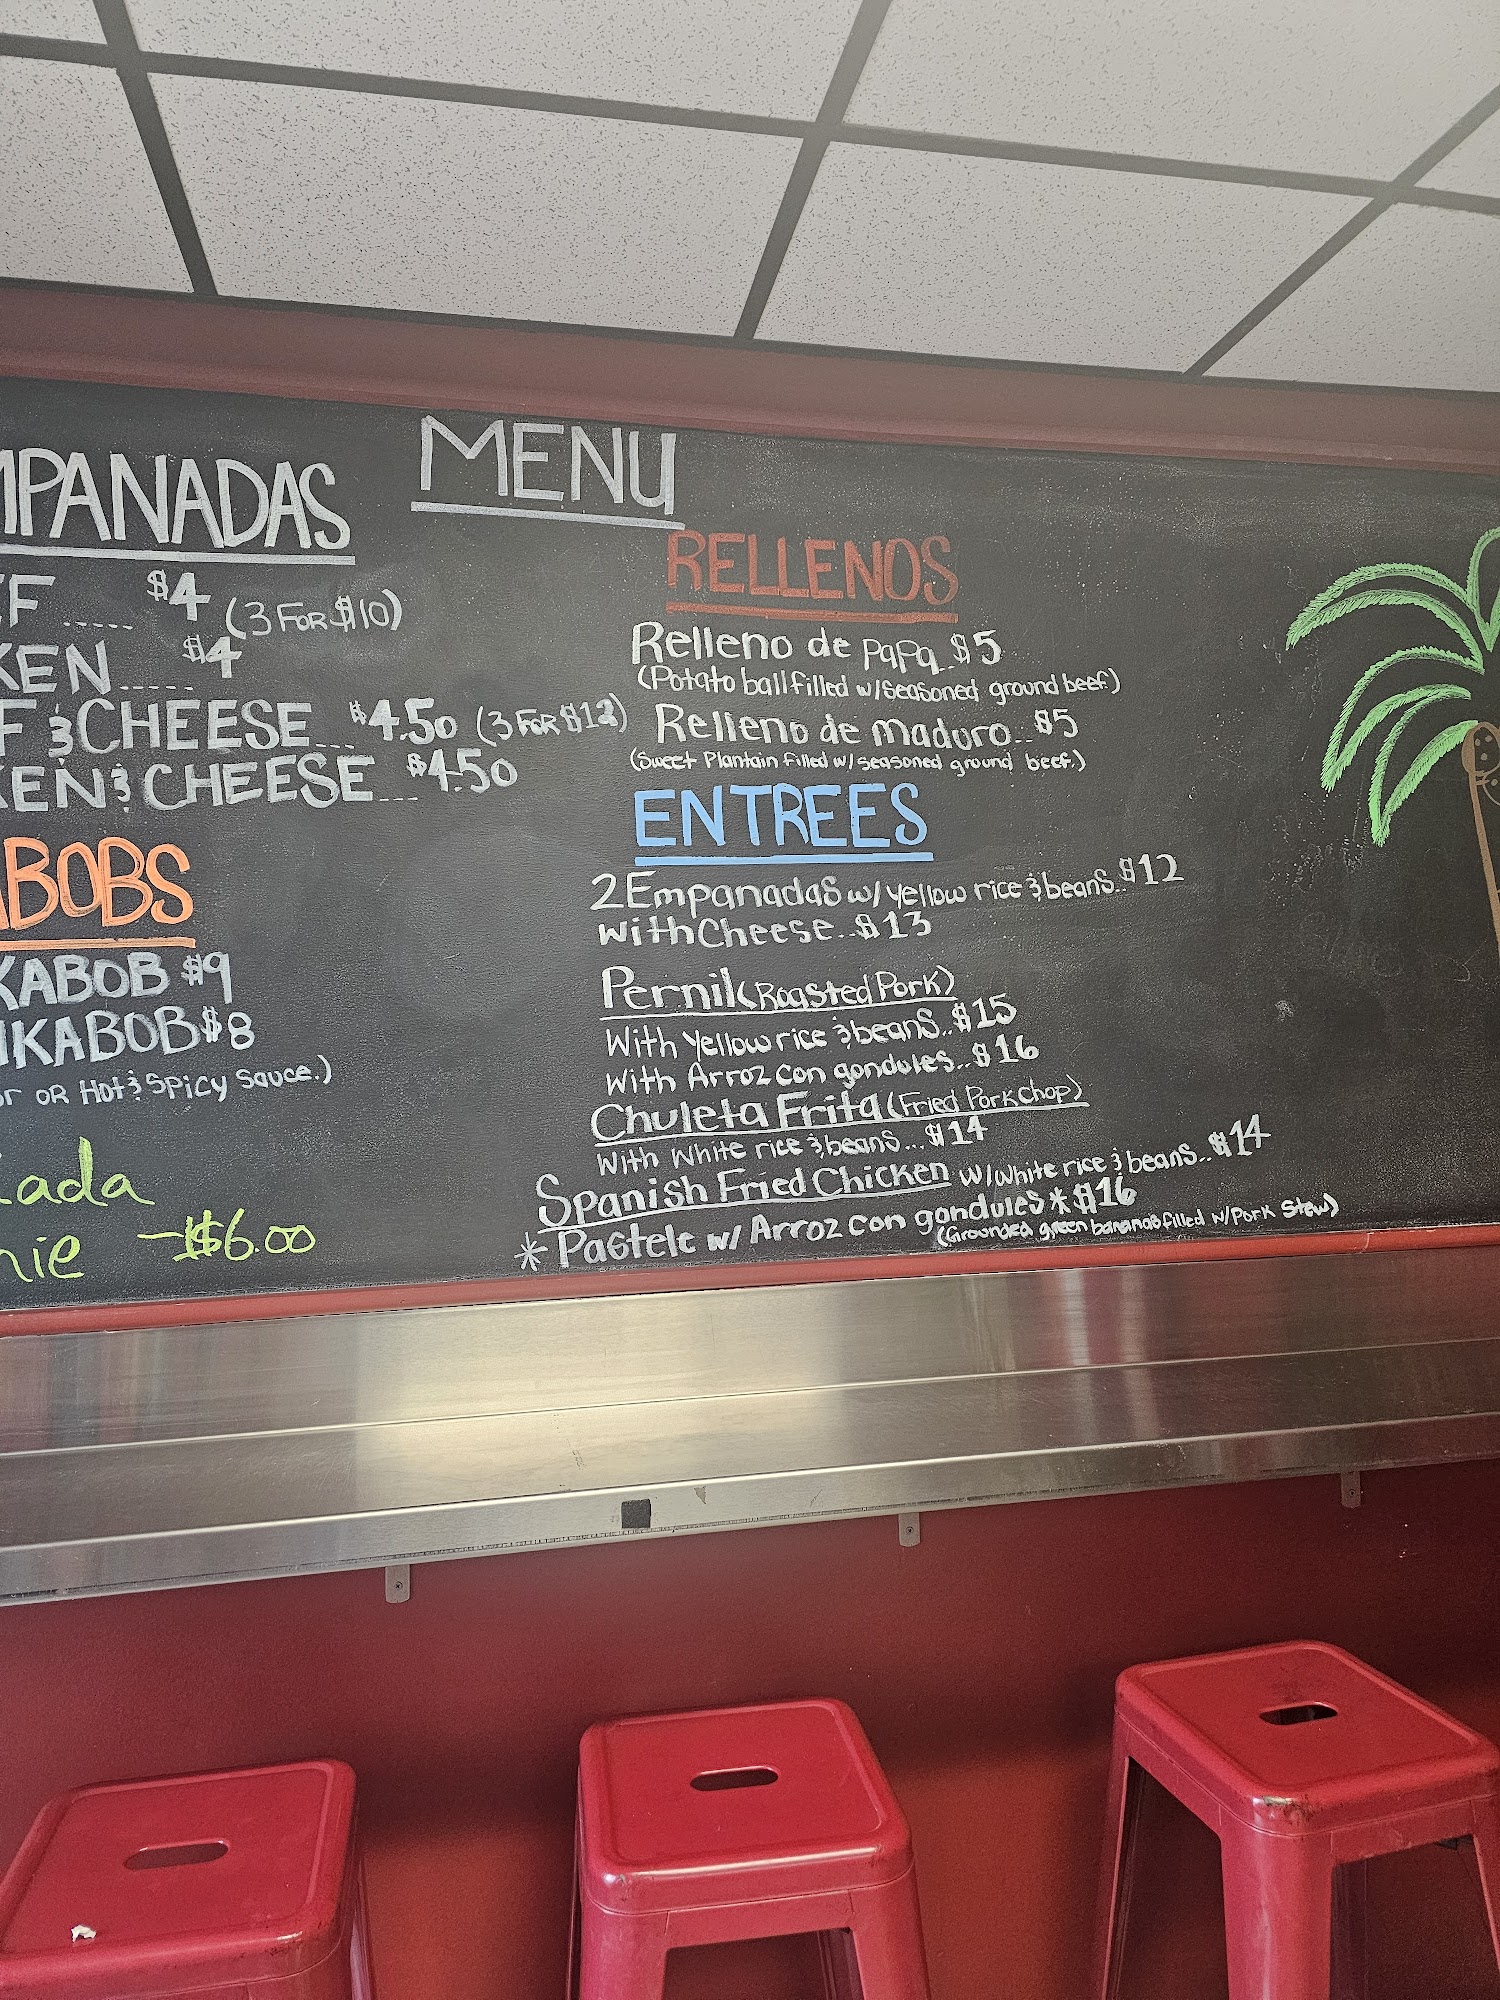 MENU
MPANADAS
EF ..... $4 (3 FOR $10)
KEN ..... $4
F & CHEESE... $4.50 (3 FOR $12)
KEN & CHEESE... $4.50
ABOBS
KABOB $9
NKABOB $8
or OR Hot & Spicy Sauce.)
ada
nie - $6.00
RELLENOS
Relleno de papa..$5
(Potato ball filled w/ seasoned ground beef.)
Relleno de Maduro..$5
(Sweet Plantain filled w/ seasoned ground beef.)
ENTREES
2 Empanadas w/ yellow rice & beans..$12
with Cheese..$13
Pernil (Roasted Pork)
With Yellow rice & beans..$15
With Arroz con gondules..$16
Chuleta Frita (Fried Pork Chop)
With White rice & beans...$14
Spanish Fried Chicken w/ white rice & beans..$14
* Pastele w/ Arroz con gondules * $16
(Grounded green bananas filled w/ Pork Stew)